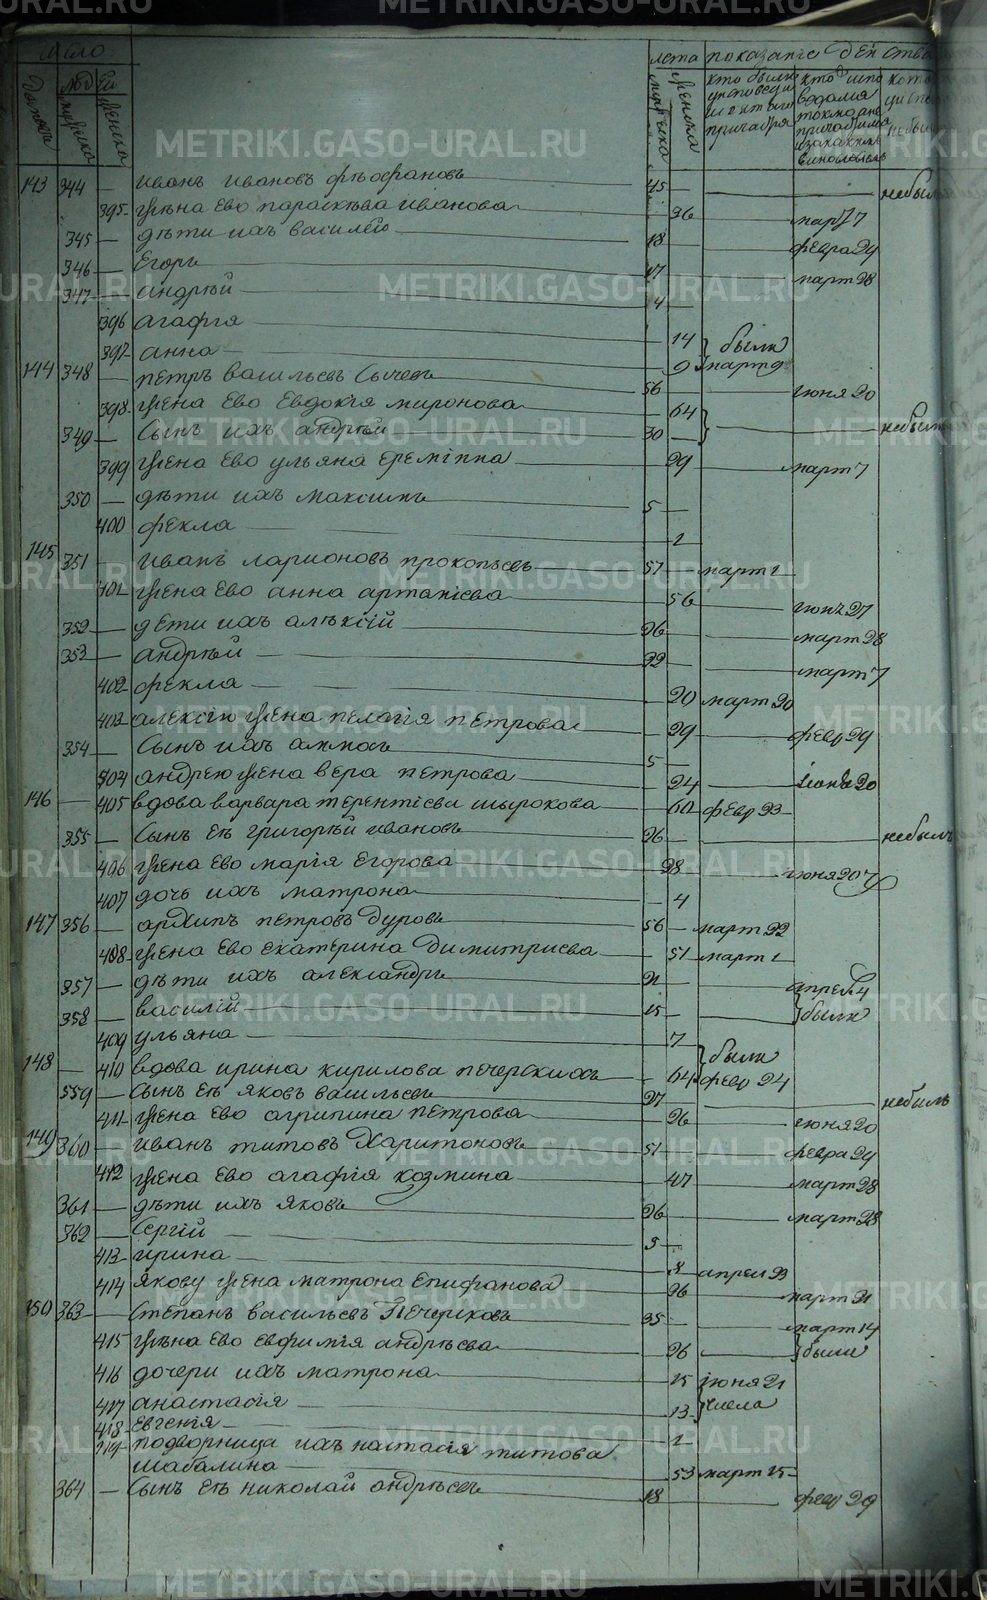 число лета показание действа
дворовъ людей мужеска женска мужеска женска кто были у исповеди и святаго причастия кто исповедалися токмо а не причастилися и за какимъ винословиемъ небыли
143 344 — иванъ ивановъ фѣофановъ 45 — небылъ
395 жѣна ево параскѣва иванова 36 март 7
345 — дѣти ихъ василей 18 февра 24
346 — Егоръ 17 март 28
347 — андрѣй 4 —
396 агафия 14 были
397 анна 9 март 9
144 348 — петръ васильевъ Сычевъ 56 июня 20
398 жена ево Евдокия миронова 64
349 — Сынъ ихъ андрѣй 30 — небыли
399 жена ево ульяна еремѣина 29 март 7
350 — дѣти ихъ максимъ 5 —
400 фекла 1
145 351 — иванъ ларионовъ прокопьевъ 57 — март 1
401 жена ево анна 56 июнь 27
352 — дети ихъ алѣксѣй 36 март 28
353 — андрѣй 32 — март 7
402 фекла 20 март 20
403 алексѣю жена пелагия петрова 29 февр 29
354 — Сынъ ихъ 5 —
404 андрею жена вера петрова 24 июня 20
146 — 405 вдова варвара терентиева широкова 60 февр 23
355 — Сынъ еѣ григорѣй ивановъ 26 — небылъ
406 жена ево мария Егорова 28 июня 20
407 дочь ихъ матрона 4
147 356 — архипъ петровъ Дуровъ 56 — март 22
408 жена ево екатерина Димитриева 51 март 1
357 — дѣти ихъ александръ 21 — апрел 4
358 — василѣй 15 — были
409 ульяна 7
148 — 410 вдова ирина кирилова печерскихъ 64 были февр 24
359 — Сынъ еѣ яковъ васильевъ 27 небылъ
411 жена ево агрипина петрова 26 июня 20
149 360 — иванъ титовъ Харитоновъ 51 — февра 24
412 жена ево агафия козмина 47 март 28
361 — дѣти ихъ яковъ 26 март 28
362 — Сергѣй 5 —
413 ирина 8 апрел 23
414 якову жена матрона Епифанова 26 март 21
150 363 — Степанъ васильевъ Печерсковъ 35 — март 14
415 жѣна ево евфимия андрѣева 36 были
416 дочери ихъ матрона 15 июня 21
417 анастасия 13 числа
418 Евгения 1
419 подворница ихъ настасия титова
шабалина 53 март 15
364 — Сынъ еѣ николай андрѣевъ 18 февр 29
METRIKI.GASO-URAL.RU